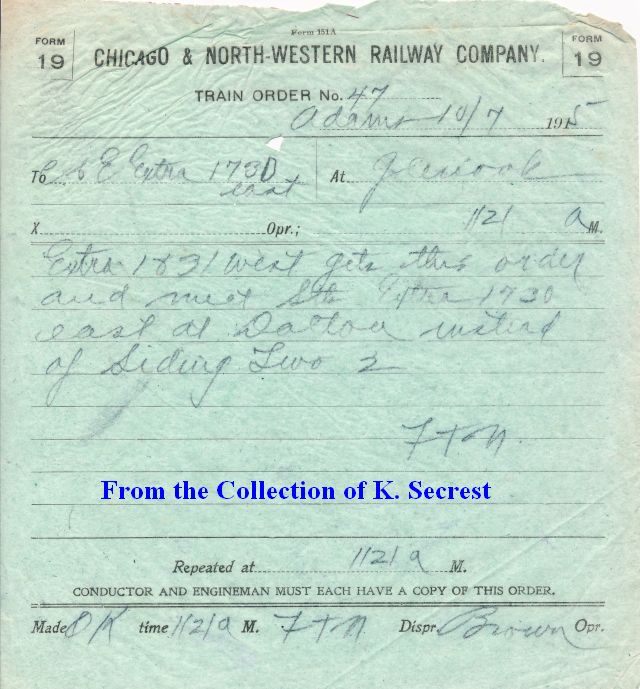 Form 151A
FORM 19
CHICAGO & NORTH-WESTERN RAILWAY COMPANY.
FORM 19
TRAIN ORDER No. 47
Adams 10/7 1915
To C & E Extra 1730 east At
X Opr.; 1121 a M.
Extra 1831 west gets this order
and meet Extra 1730
east at Dalton instead
of Siding Two 2
From the Collection of K. Secrest
Repeated at 1121 a M.
CONDUCTOR AND ENGINEMAN MUST EACH HAVE A COPY OF THIS ORDER.
Made OK time 1121a M. Dispr. Brown Opr.